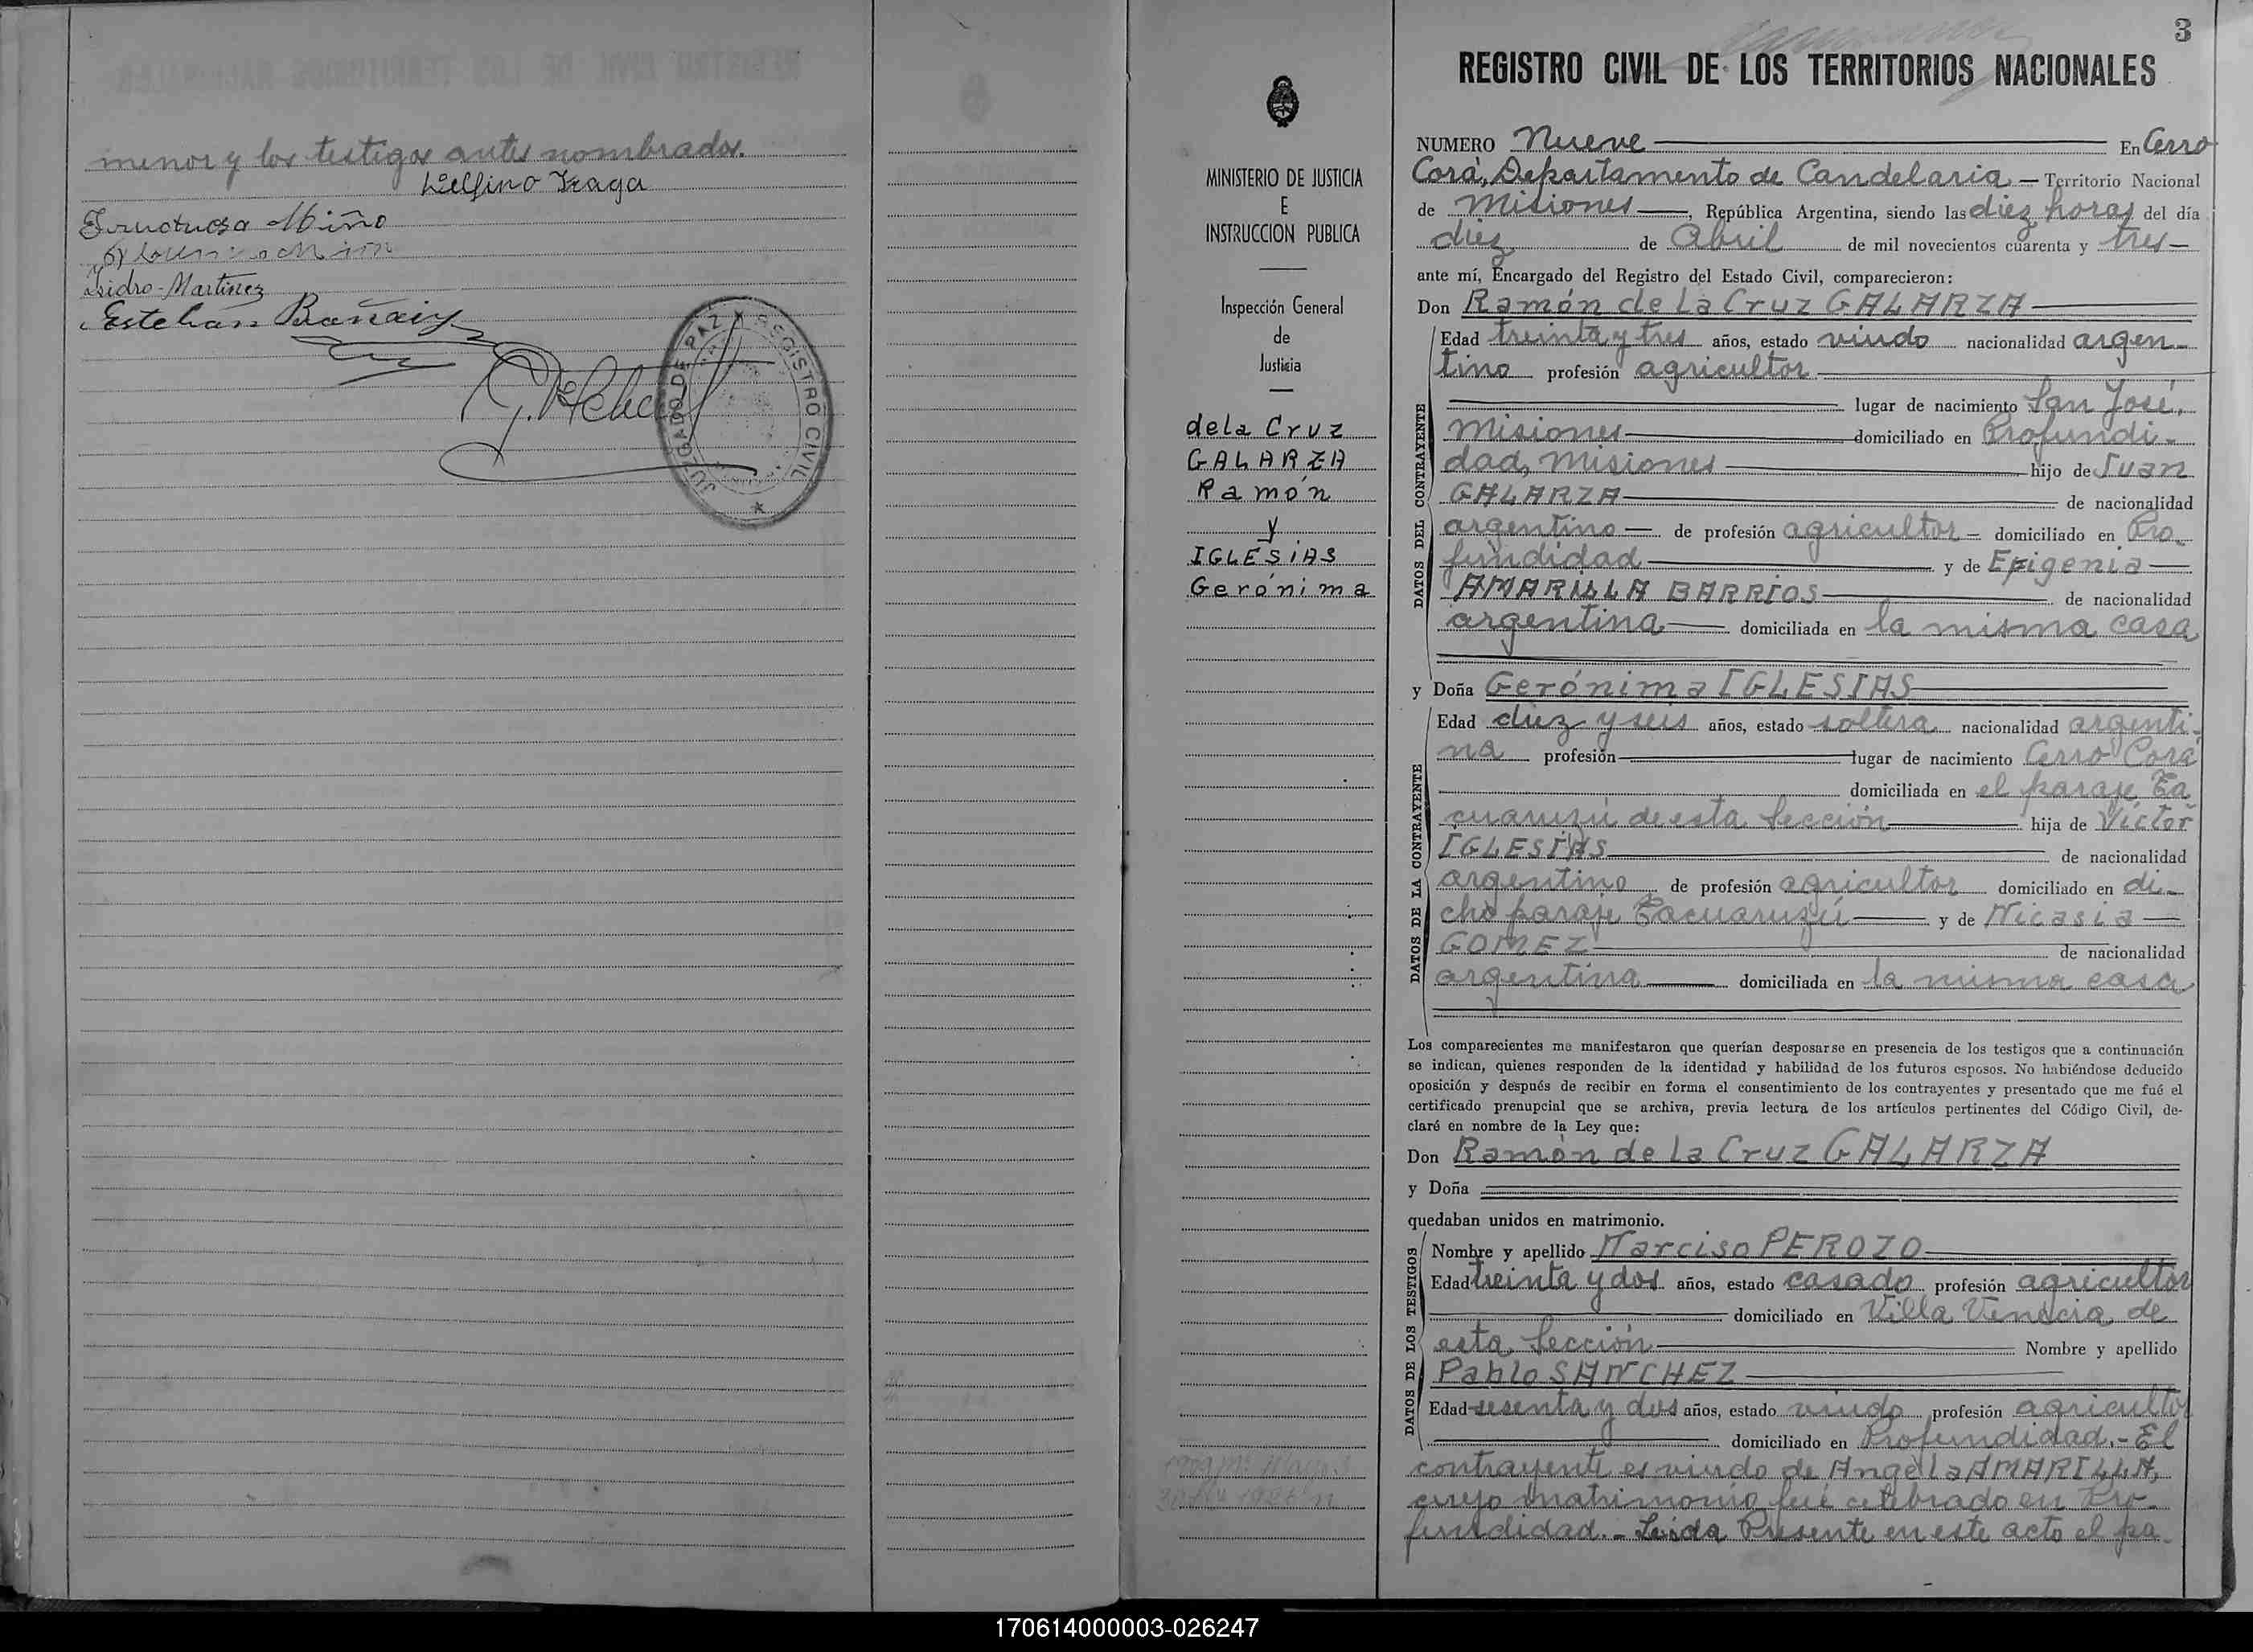 menor y los testigos antes nombrados.
Delfino Fraga
Fructuosa Miño
Isidro Martinez
Esteban
JUZGADO DE PAZ Y REGISTRO CIVIL
MINISTERIO DE JUSTICIA
E
INSTRUCCION PUBLICA
Inspección General
de
Justicia
de la Cruz
GALARZA
Ramón
y
IGLESIAS
Gerónima
3
REGISTRO CIVIL DE LOS TERRITORIOS NACIONALES
NUMERO Nueve En Cerro
Corá, Departamento de Candelaria — Territorio Nacional
de Misiones —, República Argentina, siendo las diez horas del día
diez de Abril de mil novecientos cuarenta y tres —
ante mí, Encargado del Registro del Estado Civil, comparecieron:
Don Ramón de la Cruz GALARZA
Edad treinta y tres años, estado viudo nacionalidad argen-
tino profesión agricultor
lugar de nacimiento San José,
Misiones domiciliado en Profundi-
dad, Misiones hijo de Juan
GALARZA de nacionalidad
argentino — de profesión agricultor — domiciliado en Pro-
fundidad y de Epigenia
AMARILLA BARRIOS de nacionalidad
argentina domiciliada en la misma casa
DATOS DEL CONTRAYENTE
y Doña Gerónima IGLESIAS
Edad diez y seis años, estado soltera nacionalidad argenti-
na profesión lugar de nacimiento Cerro Corá
domiciliada en el paraje Ta
cuaruzú de esta Sección hija de Víctor
IGLESIAS de nacionalidad
argentino de profesión agricultor domiciliado en di-
cho paraje Tacuaruzú y de Nicasia
GOMEZ de nacionalidad
argentina domiciliada en la misma casa
DATOS DE LA CONTRAYENTE
Los comparecientes me manifestaron que querían desposarse en presencia de los testigos que a continuación
se indican, quienes responden de la identidad y habilidad de los futuros esposos. No habiéndose deducido
oposición y después de recibir en forma el consentimiento de los contrayentes y presentado que me fué el
certificado prenupcial que se archiva, previa lectura de los artículos pertinentes del Código Civil, de-
claré en nombre de la Ley que:
Don Ramón de la Cruz GALARZA
y Doña
quedaban unidos en matrimonio.
Nombre y apellido Narciso PEROZO
Edad treinta y dos años, estado casado profesión agricultor
domiciliado en Villa Venecia de
esta Sección Nombre y apellido
Pablo SANCHEZ
Edad sesenta y dos años, estado viudo profesión agricultor
domiciliado en Profundidad.- El
DATOS DE LOS TESTIGOS
contrayente es viudo de Angela AMARILLA,
cuyo matrimonio fué celebrado en Pro-
fundidad.- Leída Presente en este acto el pa-
170614000003-026247